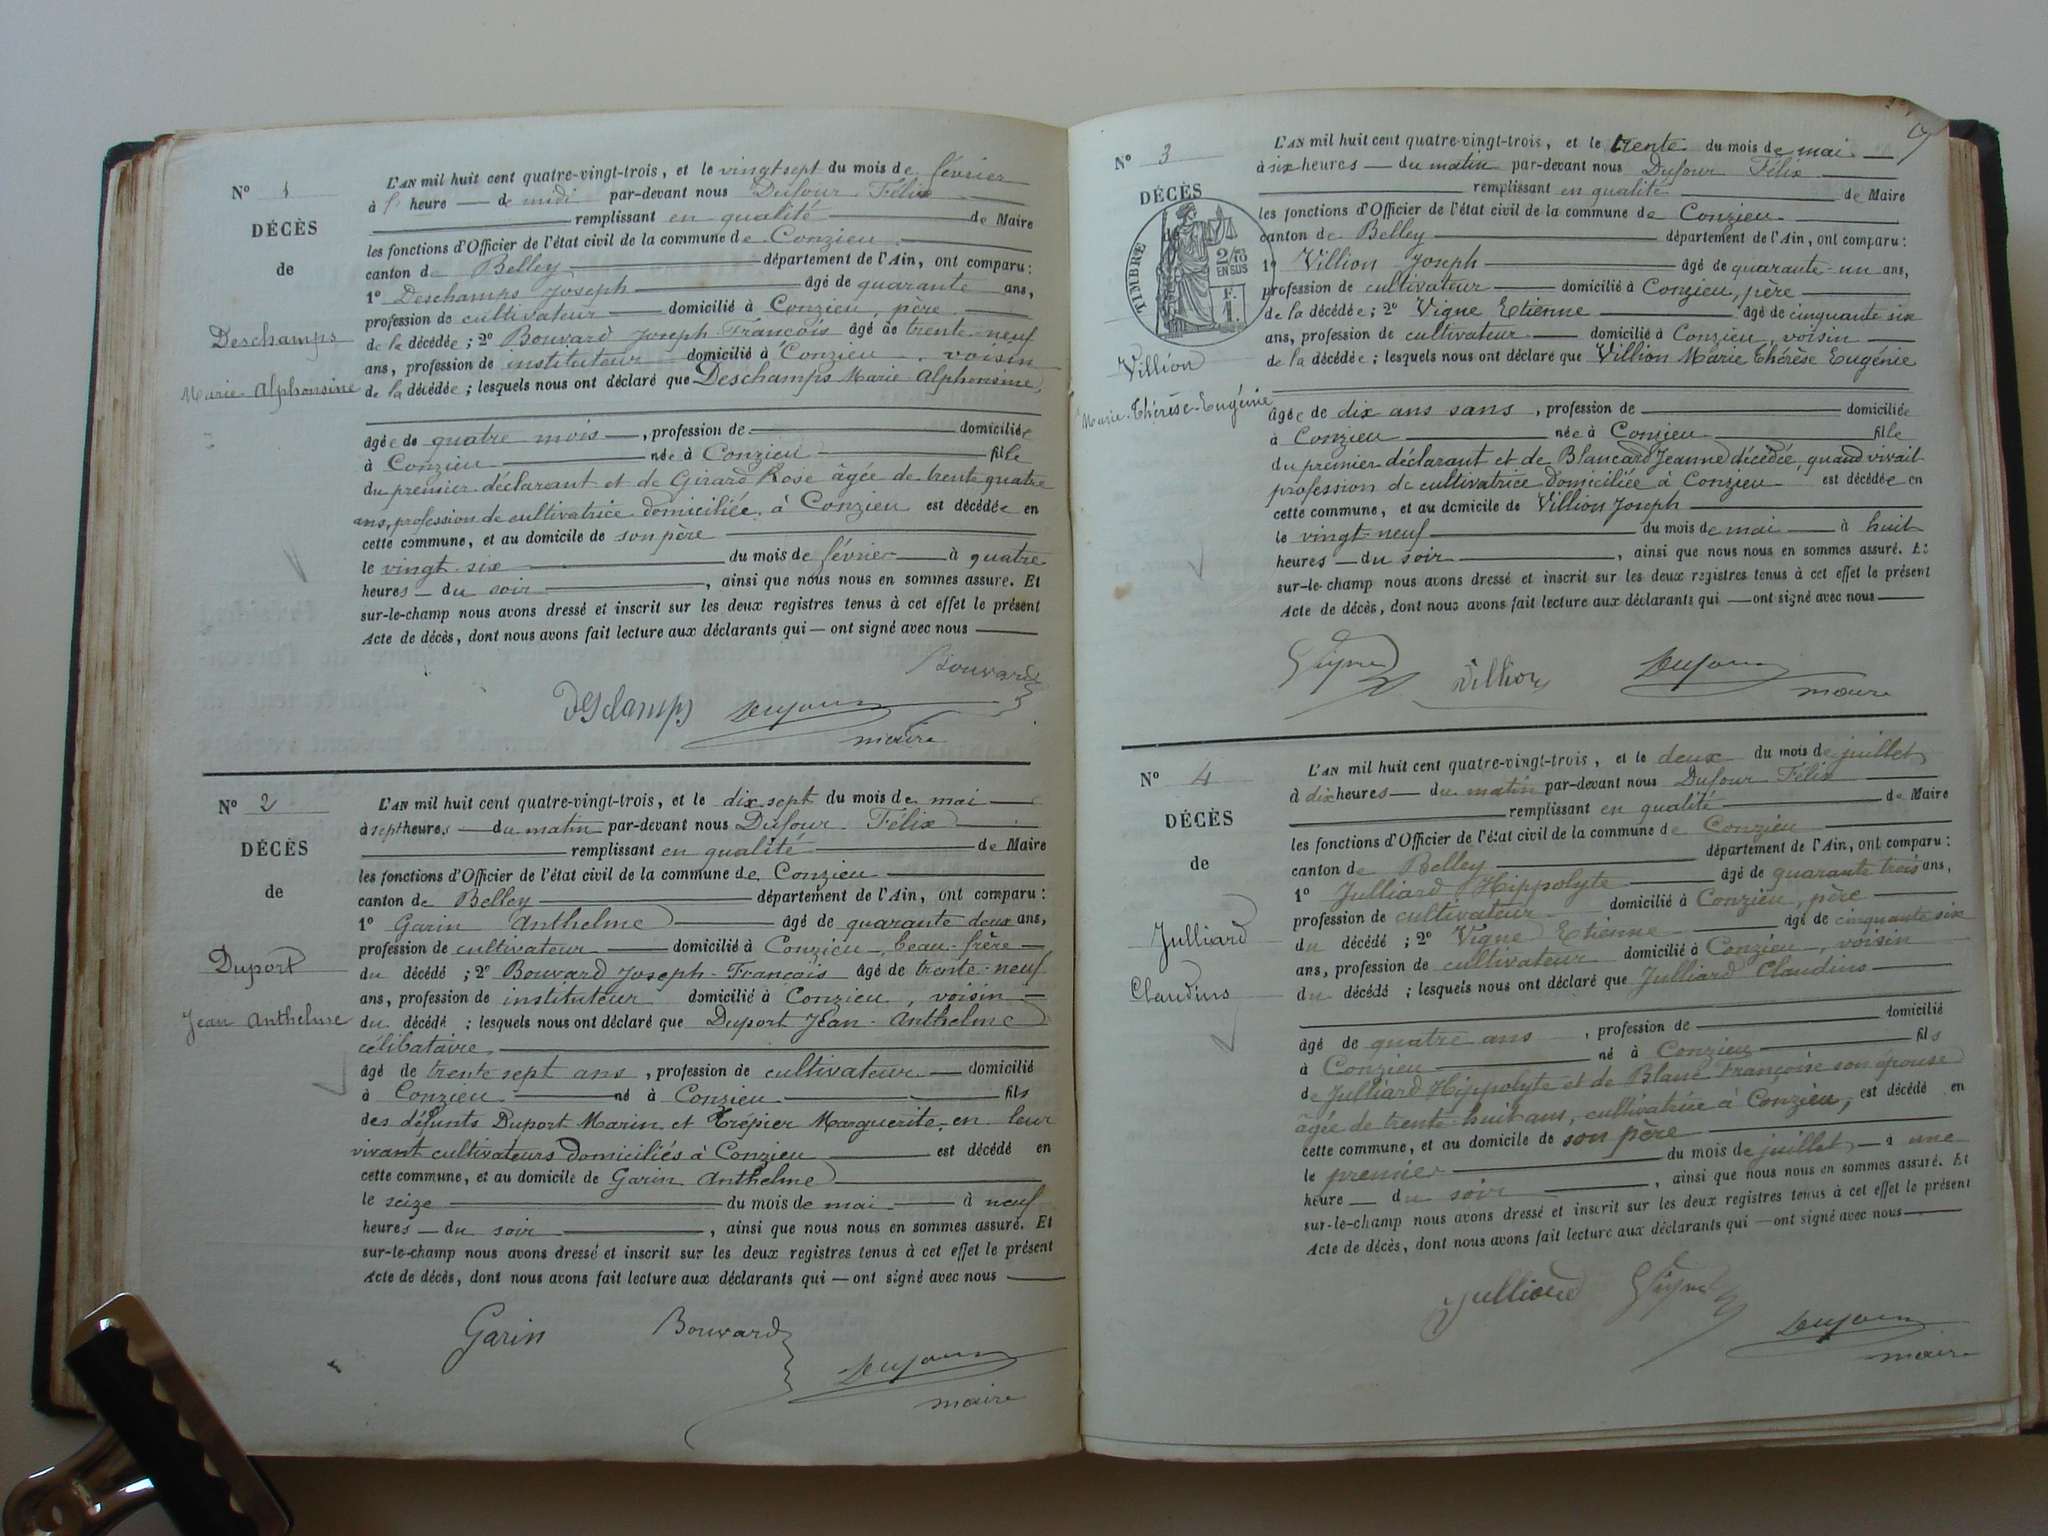 N° 1
DÉCÈS
de
Deschamps
Marie Alphonsine
L'AN mil huit cent quatre-vingt-trois, et le vingt sept du mois de février
à heure de midi par-devant nous Dufour Félix
remplissant en qualité de Maire
les fonctions d'Officier de l'état civil de la commune de Conzieu
canton de Belley département de l'Ain, ont comparu :
1° Deschamps Joseph âgé de quarante ans,
profession de cultivateur domicilié à Conzieu, père
de la décédée ; 2° Bouvard Joseph François âgé de trente-neuf
ans, profession de instituteur domicilié à Conzieu, voisin
de la décédée ; lesquels nous ont déclaré que Deschamps Marie Alphonsine,
âgée de quatre mois, profession de domiciliée
à Conzieu née à Conzieu fille
du premier déclarant et de Girard Rose âgée de trente quatre
ans, profession de cultivatrice domiciliée à Conzieu est décédée en
cette commune, et au domicile de son père
le vingt-six du mois de février à quatre
heures du soir, ainsi que nous nous en sommes assuré. Et
sur-le-champ nous avons dressé et inscrit sur les deux registres tenus à cet effet le présent
Acte de décès, dont nous avons fait lecture aux déclarants qui ont signé avec nous
Bouvard
Deschamps Dufour
maire
N° 2
DÉCÈS
de
Duport
Jean Anthelme
L'AN mil huit cent quatre-vingt-trois, et le dix sept du mois de mai
à sept heures du matin par-devant nous Dufour Félix
remplissant en qualité de Maire
les fonctions d'Officier de l'état civil de la commune de Conzieu
canton de Belley département de l'Ain, ont comparu :
1° Garin Anthelme âgé de quarante deux ans,
profession de cultivateur domicilié à Conzieu, beau-frère
du décédé ; 2° Bouvard Joseph-François âgé de trente-neuf
ans, profession de instituteur domicilié à Conzieu, voisin
du décédé ; lesquels nous ont déclaré que Duport Jean-Anthelme
célibataire
âgé de trente sept ans, profession de cultivateur domicilié
à Conzieu né à Conzieu fils
des défunts Duport Marin et Trépier Marguerite, en leur
vivant cultivateurs domiciliés à Conzieu est décédé en
cette commune, et au domicile de Garin Anthelme
le seize du mois de mai à neuf
heures du soir, ainsi que nous nous en sommes assuré. Et
sur-le-champ nous avons dressé et inscrit sur les deux registres tenus à cet effet le présent
Acte de décès, dont nous avons fait lecture aux déclarants qui ont signé avec nous
Garin Bouvard
Dufour
maire
N° 3
DÉCÈS
de
TIMBRE
2/10
EN SUS
F.
1.
Villion
Marie-Thérèse-Eugénie
L'AN mil huit cent quatre-vingt-trois, et le trente du mois de mai
à six heures du matin par-devant nous Dufour Félix
remplissant en qualité de Maire
les fonctions d'Officier de l'état civil de la commune de Conzieu
canton de Belley département de l'Ain, ont comparu :
1° Villion Joseph âgé de quarante-un ans,
profession de cultivateur domicilié à Conzieu, père
de la décédée ; 2° Vigne Etienne âgé de cinquante six
ans, profession de cultivateur domicilié à Conzieu, voisin
de la décédée ; lesquels nous ont déclaré que Villion Marie Thérèse Eugénie
âgée de dix ans sans, profession de domiciliée
à Conzieu née à Conzieu fille
du premier déclarant et de Blancard Jeanne décédée, quand vivait
profession de cultivatrice domiciliée à Conzieu est décédée en
cette commune, et au domicile de Villion Joseph
le vingt-neuf du mois de mai à huit
heures du soir, ainsi que nous nous en sommes assuré. Et
sur-le-champ nous avons dressé et inscrit sur les deux registres tenus à cet effet le présent
Acte de décès, dont nous avons fait lecture aux déclarants qui ont signé avec nous
Vigne Villion Dufour
maire
N° 4
DÉCÈS
de
Julliard
Claudius
L'AN mil huit cent quatre-vingt-trois, et le deux du mois de juillet
à dix heures du matin par-devant nous Dufour Félix
remplissant en qualité de Maire
les fonctions d'Officier de l'état civil de la commune de Conzieu
canton de Belley département de l'Ain, ont comparu :
1° Julliard Hippolyte âgé de quarante trois ans,
profession de cultivateur domicilié à Conzieu, père
du décédé ; 2° Vigne Etienne âgé de cinquante six
ans, profession de cultivateur domicilié à Conzieu, voisin
du décédé ; lesquels nous ont déclaré que Julliard Claudius
âgé de quatre ans, profession de domicilié
à Conzieu né à Conzieu fils
de Julliard Hippolyte et de Blanc Françoise son épouse
âgée de trente-huit ans, cultivatrice à Conzieu, est décédé en
cette commune, et au domicile de son père
le premier du mois de juillet à une
heure du soir, ainsi que nous nous en sommes assuré. Et
sur-le-champ nous avons dressé et inscrit sur les deux registres tenus à cet effet le présent
Acte de décès, dont nous avons fait lecture aux déclarants qui ont signé avec nous
Julliard Vigne
Dufour
maire